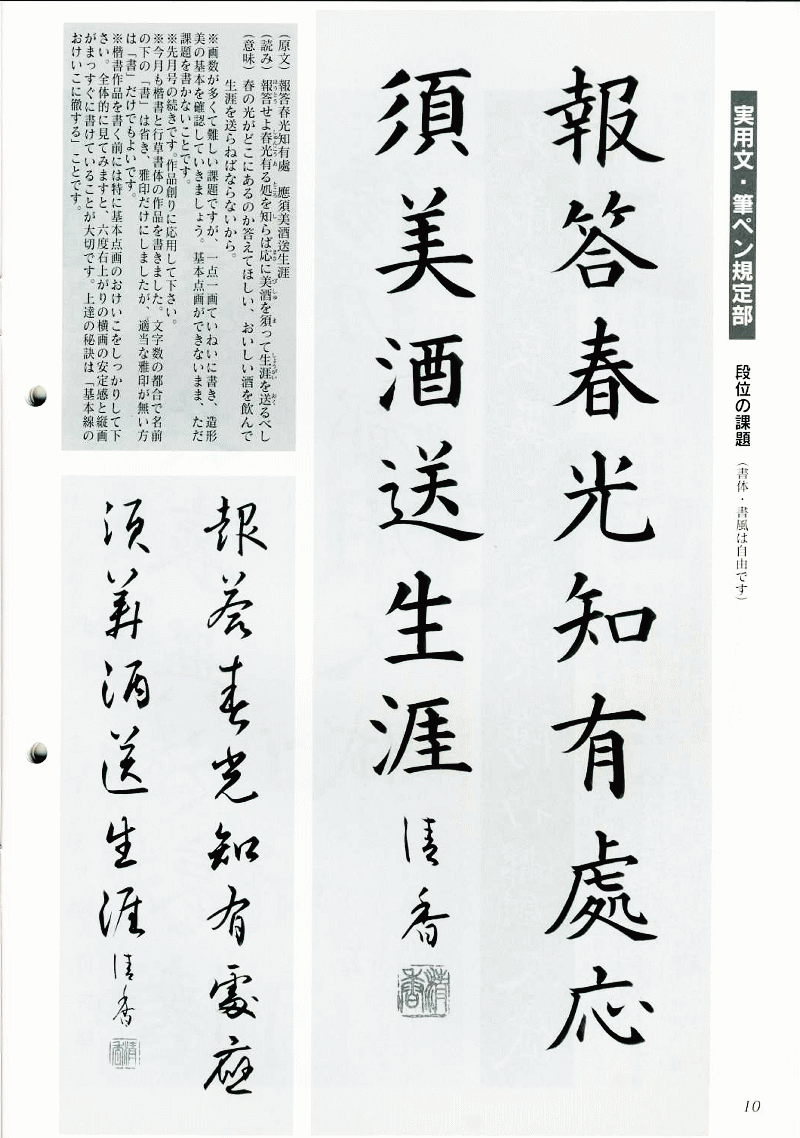 実用文・筆ペン規定部
段位の課題（書体・書風は自由です）
報答春光知有處応
須美酒送生涯 清香
清香
（原文）報答春光知有處　應須美酒送生涯
（読み）報答せよ春光有る処を知らば応に美酒を須って生涯を送るべし
（意味）春の光がどこにあるのか答えてほしい、おいしい酒を飲んで
生涯を送らねばならないから。
※画数が多くて難しい課題ですが、一点一画ていねいに書き、造形
美の基本を確認していきましょう。基本点画ができないまま、ただ
課題を書かないことです。
※先月号の続きです。作品創りに応用して下さい。
※今月も楷書と行草書体の作品を書きました。文字数の都合で名前
の下の「書」は省き、雅印だけにしましたが、適当な雅印が無い方
は「書」だけでもよいです。
※楷書作品を書く前には特に基本点画のおけいこをしっかりして下
さい。全体的に見てみますと、六度右上がりの横画の安定感と縦画
がまっすぐに書けていることが大切です。上達の秘訣は「基本線の
おけいこに徹する」ことです。
報答春光知有處應
須美酒送生涯 清香
清香
10